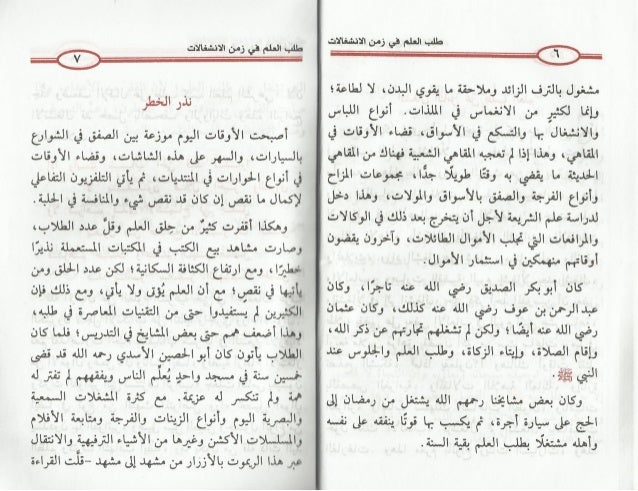 طلب العلم في زمن الانشغالات
٦
مشغول بالترف الزائد وملاحقة ما يقوي البدن، لا لطاعة؛
وإنما لكثيرٍ من الانغماس في الملذات. أنواع اللباس
والانشغال بها والتسكع في الأسواق، قضاء الأوقات في
المقاهي، وهذا إذا لم تعجبه المقاهي الشعبية فهناك من المقاهي
الحديثة ما يقضي به وقتًا طويلًا جدًا، مجموعات المزاح
وأنواع الفرجة والصفق بالأسواق والمولات، وهذا دخل
لدراسة علم الشريعة لأجل أن يتخرج بعد ذلك في الوكالات
والمرافعات التي تجلب الأموال الطائلات، وآخرون يقضون
أوقاتهم منهمكين في استثمار الأموال.
كان أبو بكر الصديق رضي الله عنه تاجرًا، وكان
عبد الرحمن بن عوف رضي الله عنه كذلك، وكان عثمان
رضي الله عنه أيضًا؛ ولكن لم تشغلهم تجارتهم عن ذكر الله،
وإقام الصلاة، وإيتاء الزكاة، وطلب العلم والجلوس عند
النبي ﷺ.
وكان بعض مشايخنا رحمهم الله يشتغل من رمضان إلى
الحج على سيارة أجرة، ثم يكسب بها قوتًا ينفقه على نفسه
وأهله مشتغلًا بطلب العلم بقية السنة.
طلب العلم في زمن الانشغالات
٧
نذر الخطر
أصبحت الأوقات اليوم موزعة بين الصفق في الشوارع
بالسيارات، والسهر على هذه الشاشات، وقضاء الأوقات
في أنواع الحوارات في المنتديات، ثم يأتي التلفزيون التفاعلي
لإكمال ما نقص إن كان قد نقص شيء والمنافسة في الحلبة.
وهكذا أقفرت كثيرٌ من حلق العلم وقلَّ عدد الطلاب،
وصارت مشاهد بيع الكتب في المكتبات المستعملة نذيرًا
خطيرًا، ومع ارتفاع الكثافة السكانية؛ لكن عدد الحلق ومن
يأتيها في نقصٍ؛ مع أن العلم يُؤتى ولا يأتي، ومع ذلك فإن
الكثيرين لم يستفيدوا حتى من التقنيات المعاصرة في طلبه،
وهذا أضعف همم حتى بعض المشايخ في التدريس؛ فلما كان
الطلاب يأتون كان أبو الحصين الأسدي رحمه الله قد قضى
خمسين سنة في مسجد واحدٍ يُعلِّم الناس ويفقههم لم تفتر له
همة ولم تنكسر له عزيمة. مع كثرة المشغلات السمعية
والبصرية اليوم وأنواع الزينات والفرجة ومتابعة الأفلام
والمسلسلات الأكشن وغيرها من الأشياء الترفيهية والانتقال
عبر هذا الريموت بالأزرار من مشهد إلى مشهد –قلَّت القراءة